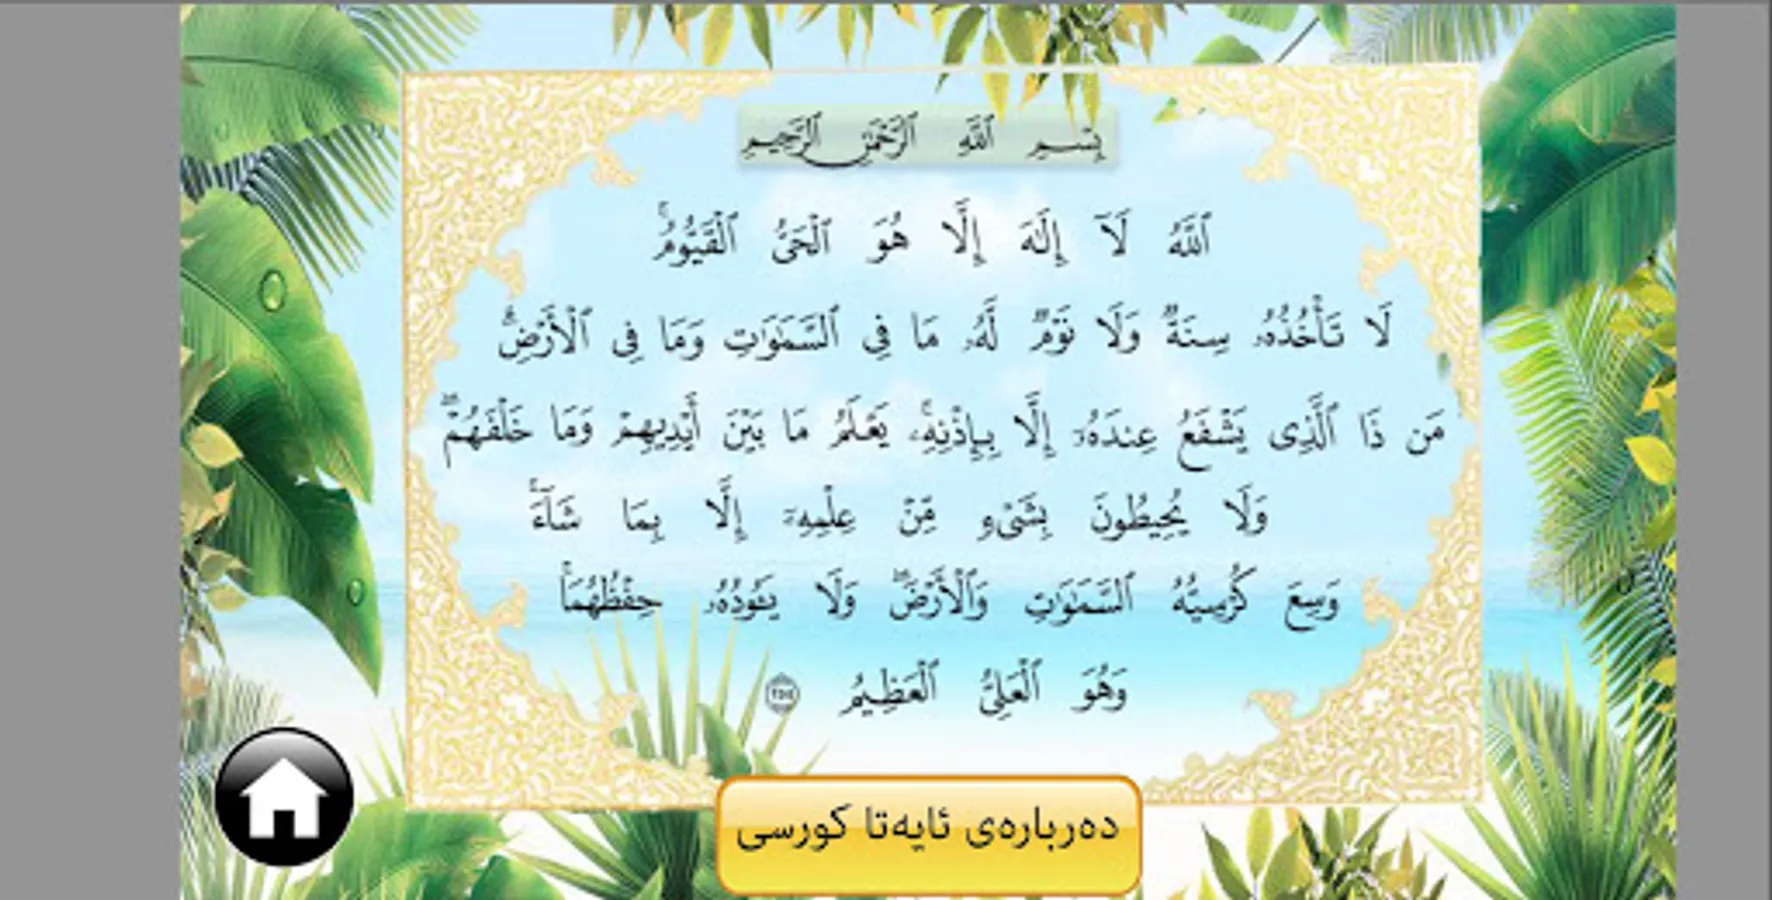 بِسْمِ ٱللَّهِ ٱلرَّحْمَٰنِ ٱلرَّحِيمِ
ٱللَّهُ لَآ إِلَٰهَ إِلَّا هُوَ ٱلْحَىُّ ٱلْقَيُّومُ ۚ
لَا تَأْخُذُهُۥ سِنَةٌ وَلَا نَوْمٌ لَّهُۥ مَا فِى ٱلسَّمَٰوَٰتِ وَمَا فِى ٱلْأَرْضِ ۗ
مَن ذَا ٱلَّذِى يَشْفَعُ عِندَهُۥٓ إِلَّا بِإِذْنِهِۦ ۚ يَعْلَمُ مَا بَيْنَ أَيْدِيهِمْ وَمَا خَلْفَهُمْ ۖ
وَلَا يُحِيطُونَ بِشَىْءٍ مِّنْ عِلْمِهِۦٓ إِلَّا بِمَا شَآءَ ۚ
وَسِعَ كُرْسِيُّهُ ٱلسَّمَٰوَٰتِ وَٱلْأَرْضَ ۖ وَلَا يَـُٔودُهُۥ حِفْظُهُمَا ۚ
وَهُوَ ٱلْعَلِىُّ ٱلْعَظِيمُ ٢٥٥
دەربارەی ئایەتا کورسی